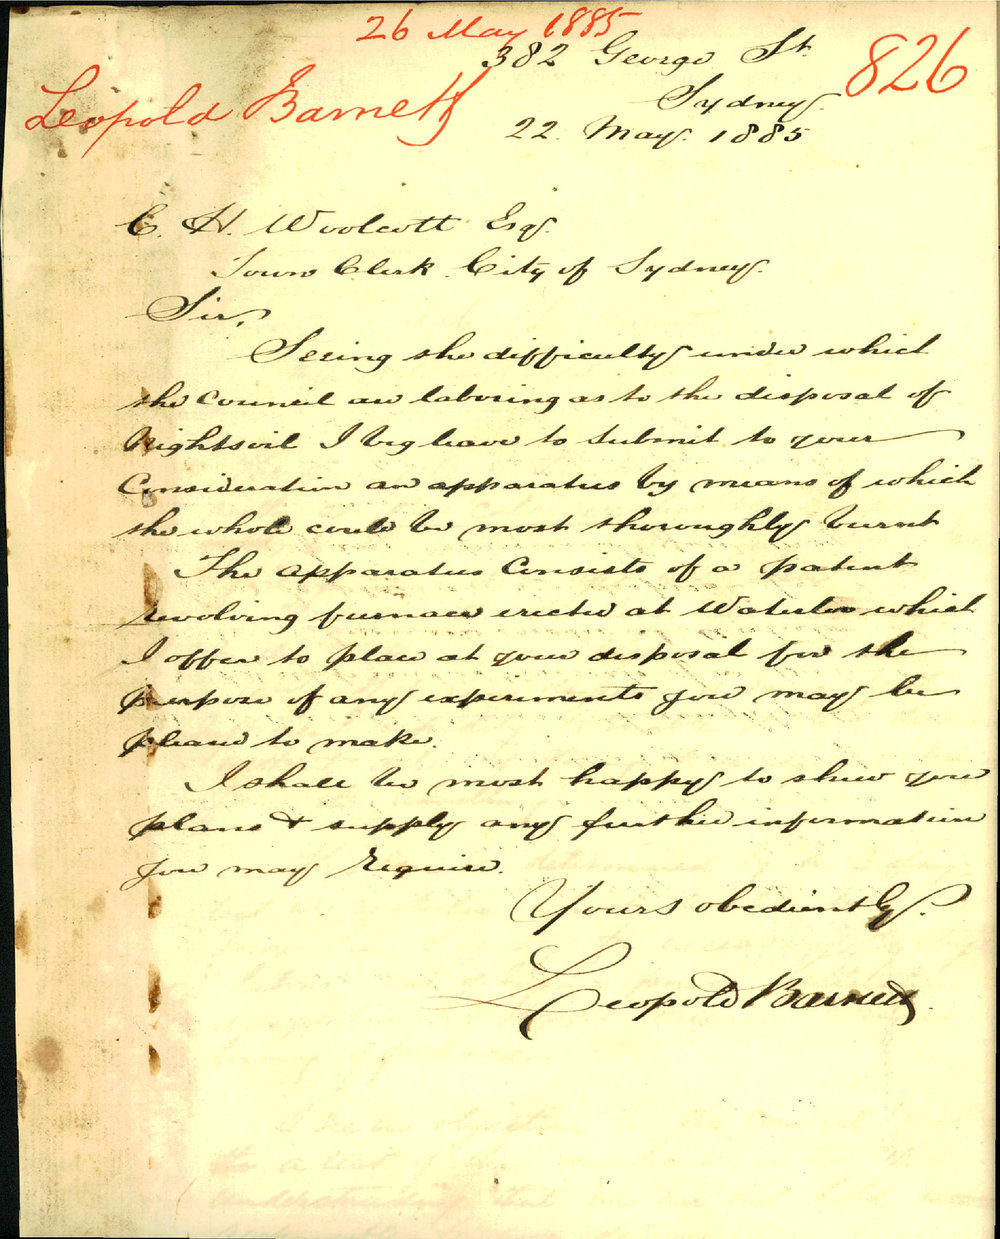 26 May 1885
382 George St
826
Leopold Barnett
Sydney
22. May. 1885
C. H. Woolcott Esq.
Town Clerk. City of Sydney.
Sir,
Seeing the difficulty under which
the Council are laboring as to the disposal of
Nightsoil I beg leave to submit to your
Consideration an apparatus by means of which
the whole could be most thoroughly burnt
The apparatus Consists of a patent
revolving furnace erected at Waterloo which
I offer to place at your disposal for the
purpose of any experiments you may be
pleased to make.
I shall be most happy to shew you
plans & supply any further information
you may Require.
Yours obediently.
Leopold Barnett.